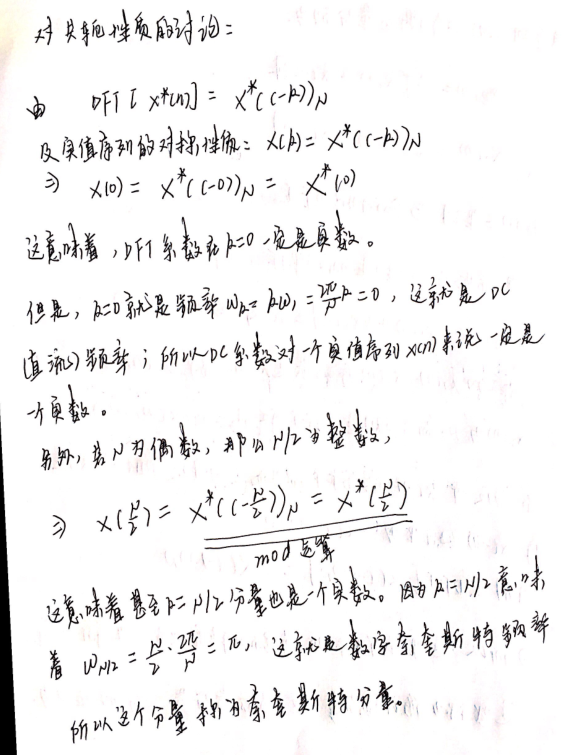 对共轭性质的讨论：
由 DFT[x*(n)] = X*((-k))N
及实值序列的对称性质：X(k) = X*((-k))N
⇒ X(0) = X*((-0))N = X*(0)
这意味着，DFT系数在k=0一定是实数。
但是，k=0就是频率ωk = kω1 = 2π/N k = 0，这就是DC
(直流)频率；所以DC系数对一个实值序列x(n)来说一定是
一个实数。
另外，若N为偶数，那么N/2为整数，
⇒ X(N/2) = X*((-N/2))N = X*(N/2)
mod运算
这意味着甚至k=N/2分量也是一个实数。因为k=N/2意味
着 ωN/2 = N/2 · 2π/N = π，这就是数字奈奎斯特频率
所以这个分量称为奈奎斯特分量。